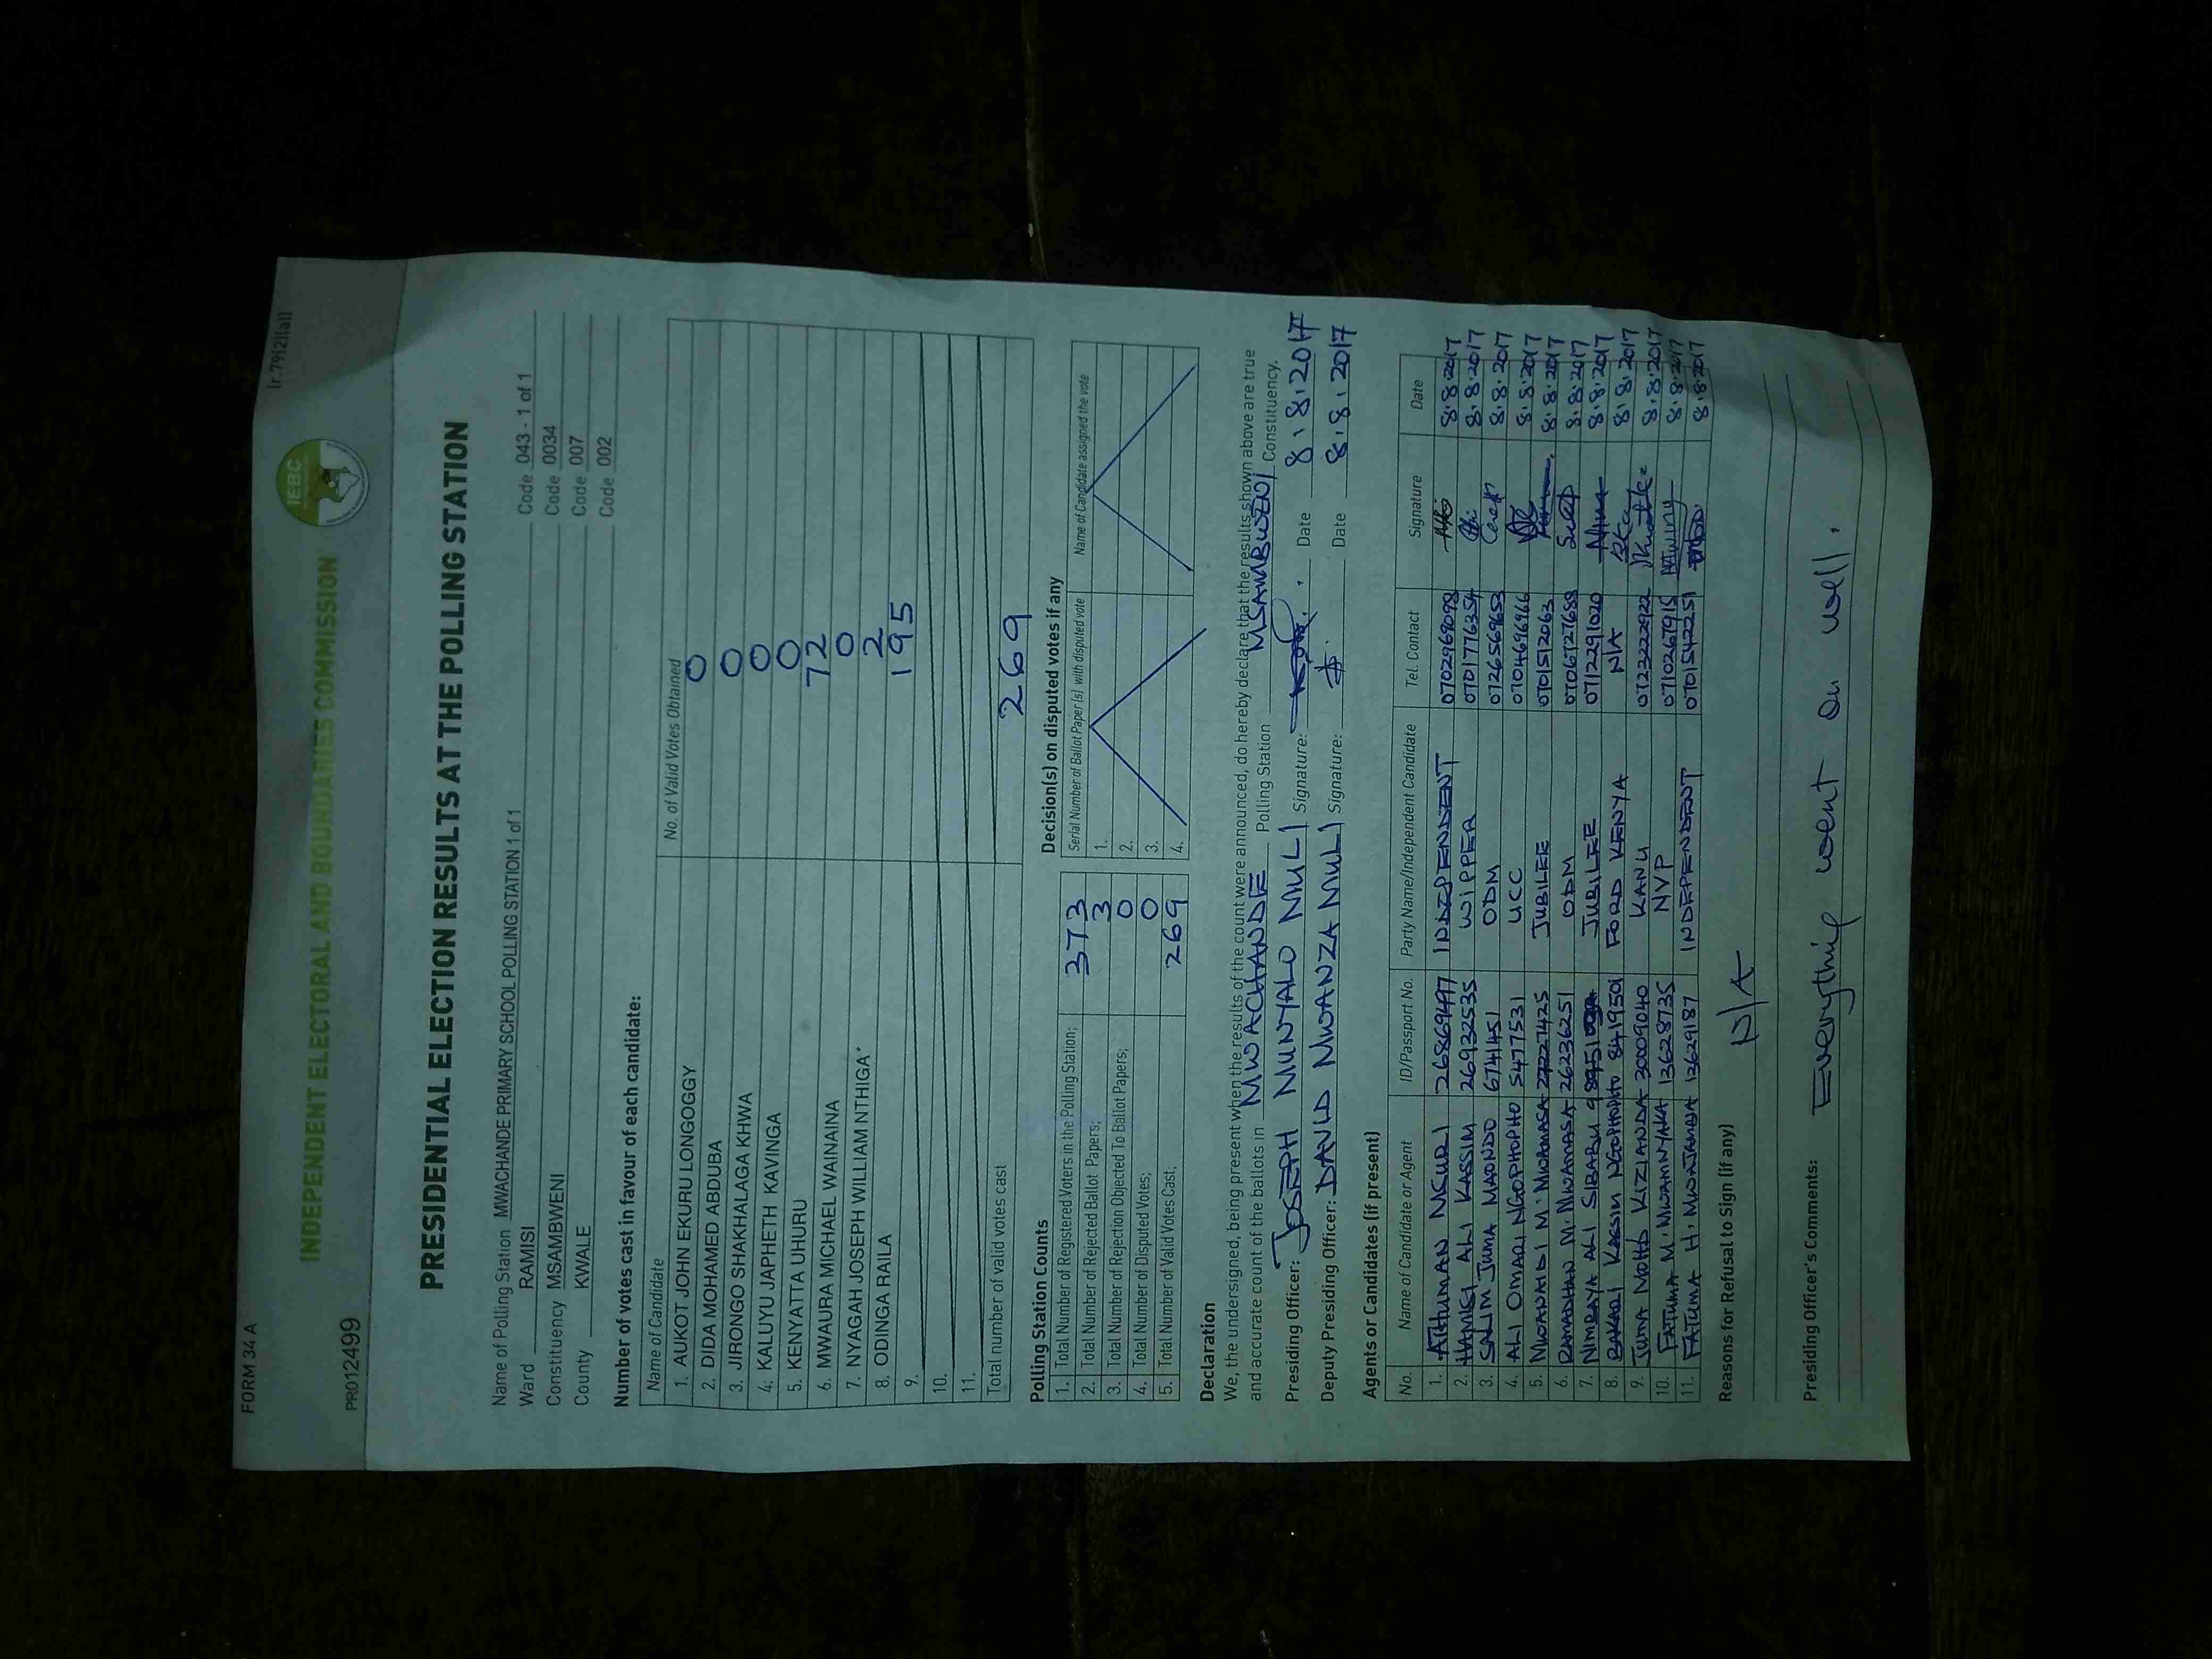 FORM 34 A
(r.79(2)(a))
IEBC
INDEPENDENT ELECTORAL AND BOUNDARIES COMMISSION
PR0124499
PRESIDENTIAL ELECTION RESULTS AT THE POLLING STATION
Name of Polling Station MWACHANDE PRIMARY SCHOOL POLLING STATION 1 of 1 Code 043 - 1 of 1
Ward RAMISI Code 0034
Constituency MSAMBWENI Code 007
County KWALE Code 002
Number of votes cast in favour of each candidate:
Name of Candidate No. of Valid Votes Obtained
1. AUKOT JOHN EKURU LONGOGGY 0
2. DIDA MOHAMED ABDUBA 0
3. JIRONGO SHAKHALAGA KHWA 0
4. KALUYU JAPHETH KAVINGA 0
5. KENYATTA UHURU 72
6. MWAURA MICHAEL WAINAINA 0
7. NYAGAH JOSEPH WILLIAM NTHIGA 2
8. ODINGA RAILA 195
9.
10.
11.
Total number of valid votes cast 269
Polling Station Counts
1. Total Number of Registered Voters in the Polling Station; 373
2. Total Number of Rejected Ballot Papers; 3
3. Total Number of Rejection Objected To Ballot Papers; 0
4. Total Number of Disputed Votes; 0
5. Total Number of Valid Votes Cast; 269
Decision(s) on disputed votes if any
Serial Number of Ballot Paper (s) with disputed vote Name of Candidate assigned the vote
1.
2.
3.
4.
Declaration
We, the undersigned, being present when the results of the count were announced, do hereby declare that the results shown above are true
and accurate count of the ballots in MWACHANDE Polling Station MSAMBWENI Constituency.
Presiding Officer: JOSEPH MUNYALO MULI Signature: Date 8.8.2017
Deputy Presiding Officer: DAVID MWANZA MULI Signature: Date 8.8.2017
Agents or Candidates (if present)
No. Name of Candidate or Agent ID/Passport No. Party Name/Independent Candidate Tel. Contact Signature Date
1. ATHUMAN 26869497 INDEPENDENT 0702969098 8.8.2017
2. HAMISI ALI KASSIM 26932535 WIPPER 0701776354 8.8.2017
3. SALIM JUMA MAONDO 6741451 ODM 0726569653 8.8.2017
4. ALI OMARI NGOPHOPHO 5477531 UCC 0704696966 8.8.2017
5. MWANAIDI M. MWAMASA 27227425 JUBILEE 0701512063 8.8.2017
6. RAMADHAN M. MWAMASA 26236251 ODM 0706727688 8.8.2017
7. ALI JUBILEE 0712291020 8.8.2017
8. BAKARI KASSIM NGOPHOPHO 8419501 FORD KENYA N/A 8.8.2017
9. JUMA MOHD KIZIANDA 30009040 KANU 0723222922 8.8.2017
10. FATUMA M. MWAMNYAKA 13628735 NVP 0710267915 8.8.2017
11. FATUMA H. MWATAMBA 13629187 INDEPENDENT 0701542251 8.8.2017
Reasons for Refusal to Sign (if any)
N/A
Presiding Officer's Comments:
Everything went on well.